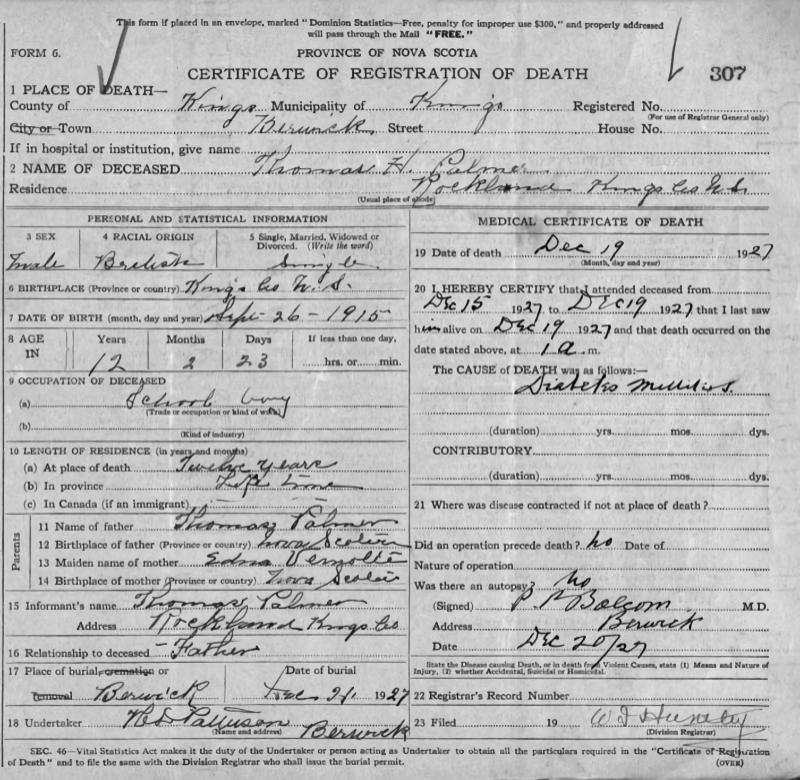 This form if placed in an envelope, marked "Dominion Statistics—Free, penalty for improper use $300," and properly addressed
will pass through the Mail "FREE."
FORM 6. PROVINCE OF NOVA SCOTIA
CERTIFICATE OF REGISTRATION OF DEATH 307
1 PLACE OF DEATH—
County of Kings Municipality of Kings Registered No.
(For use of Registrar General only)
City or Town Berwick, Street House No.
If in hospital or institution, give name
2 NAME OF DECEASED Thomas H. Palmer
Residence Rockland Kings Co N.S.
(Usual place of abode)
PERSONAL AND STATISTICAL INFORMATION
3 SEX 4 RACIAL ORIGIN 5 Single, Married, Widowed or
Divorced. (Write the word)
male British Single
6 BIRTHPLACE (Province or country) Kings Co N.S.
7 DATE OF BIRTH (month, day and year) Sept 26 - 1915
8 AGE IN Years Months Days If less than one day,
12 2 23 hrs. or min.
9 OCCUPATION OF DECEASED
(a) School boy
(Trade or occupation or kind of work)
(b)
(Kind of industry)
10 LENGTH OF RESIDENCE (in years and months)
(a) At place of death Twelve years
(b) In province Life time
(c) In Canada (if an immigrant) — —
Parents
11 Name of father Thomas Palmer
12 Birthplace of father (Province or country) Nova Scotia
13 Maiden name of mother Edna
14 Birthplace of mother (Province or country) Nova Scotia
15 Informant's name Thomas Palmer
Address Rockland Kings Co
16 Relationship to deceased – Father
17 Place of burial, cremation or Date of burial
removal Berwick Dec 21 1927
18 Undertaker Berwick
(Name and address)
MEDICAL CERTIFICATE OF DEATH
19 Date of death Dec 19 1927
(Month, day and year)
20 I HEREBY CERTIFY that I attended deceased from
Dec 15 1927 to Dec 19 1927 that I last saw
him alive on Dec 19 1927 and that death occurred on the
date stated above, at 1 a m.
The CAUSE of DEATH was as follows:—
Diabetes Mellitus.
(duration) yrs. mos. dys.
CONTRIBUTORY
(duration) yrs. mos. dys.
21 Where was disease contracted if not at place of death?
Did an operation precede death? no Date of
Nature of operation
Was there an autopsy? no
(Signed) Balcom M.D.
Address Berwick
Date Dec 20/27
State the Disease causing Death, or in death from Violent Causes, state (1) Means and Nature of
Injury, (2) whether Accidental, Suicidal or Homicidal.
22 Registrar's Record Number
23 Filed 19
(Division Registrar)
SEC. 46—Vital Statistics Act makes it the duty of the Undertaker or person acting as Undertaker to obtain all the particulars required in the "Certificate of Registration
of Death" and to file the same with the Division Registrar who shall issue the burial permit. (OVER)